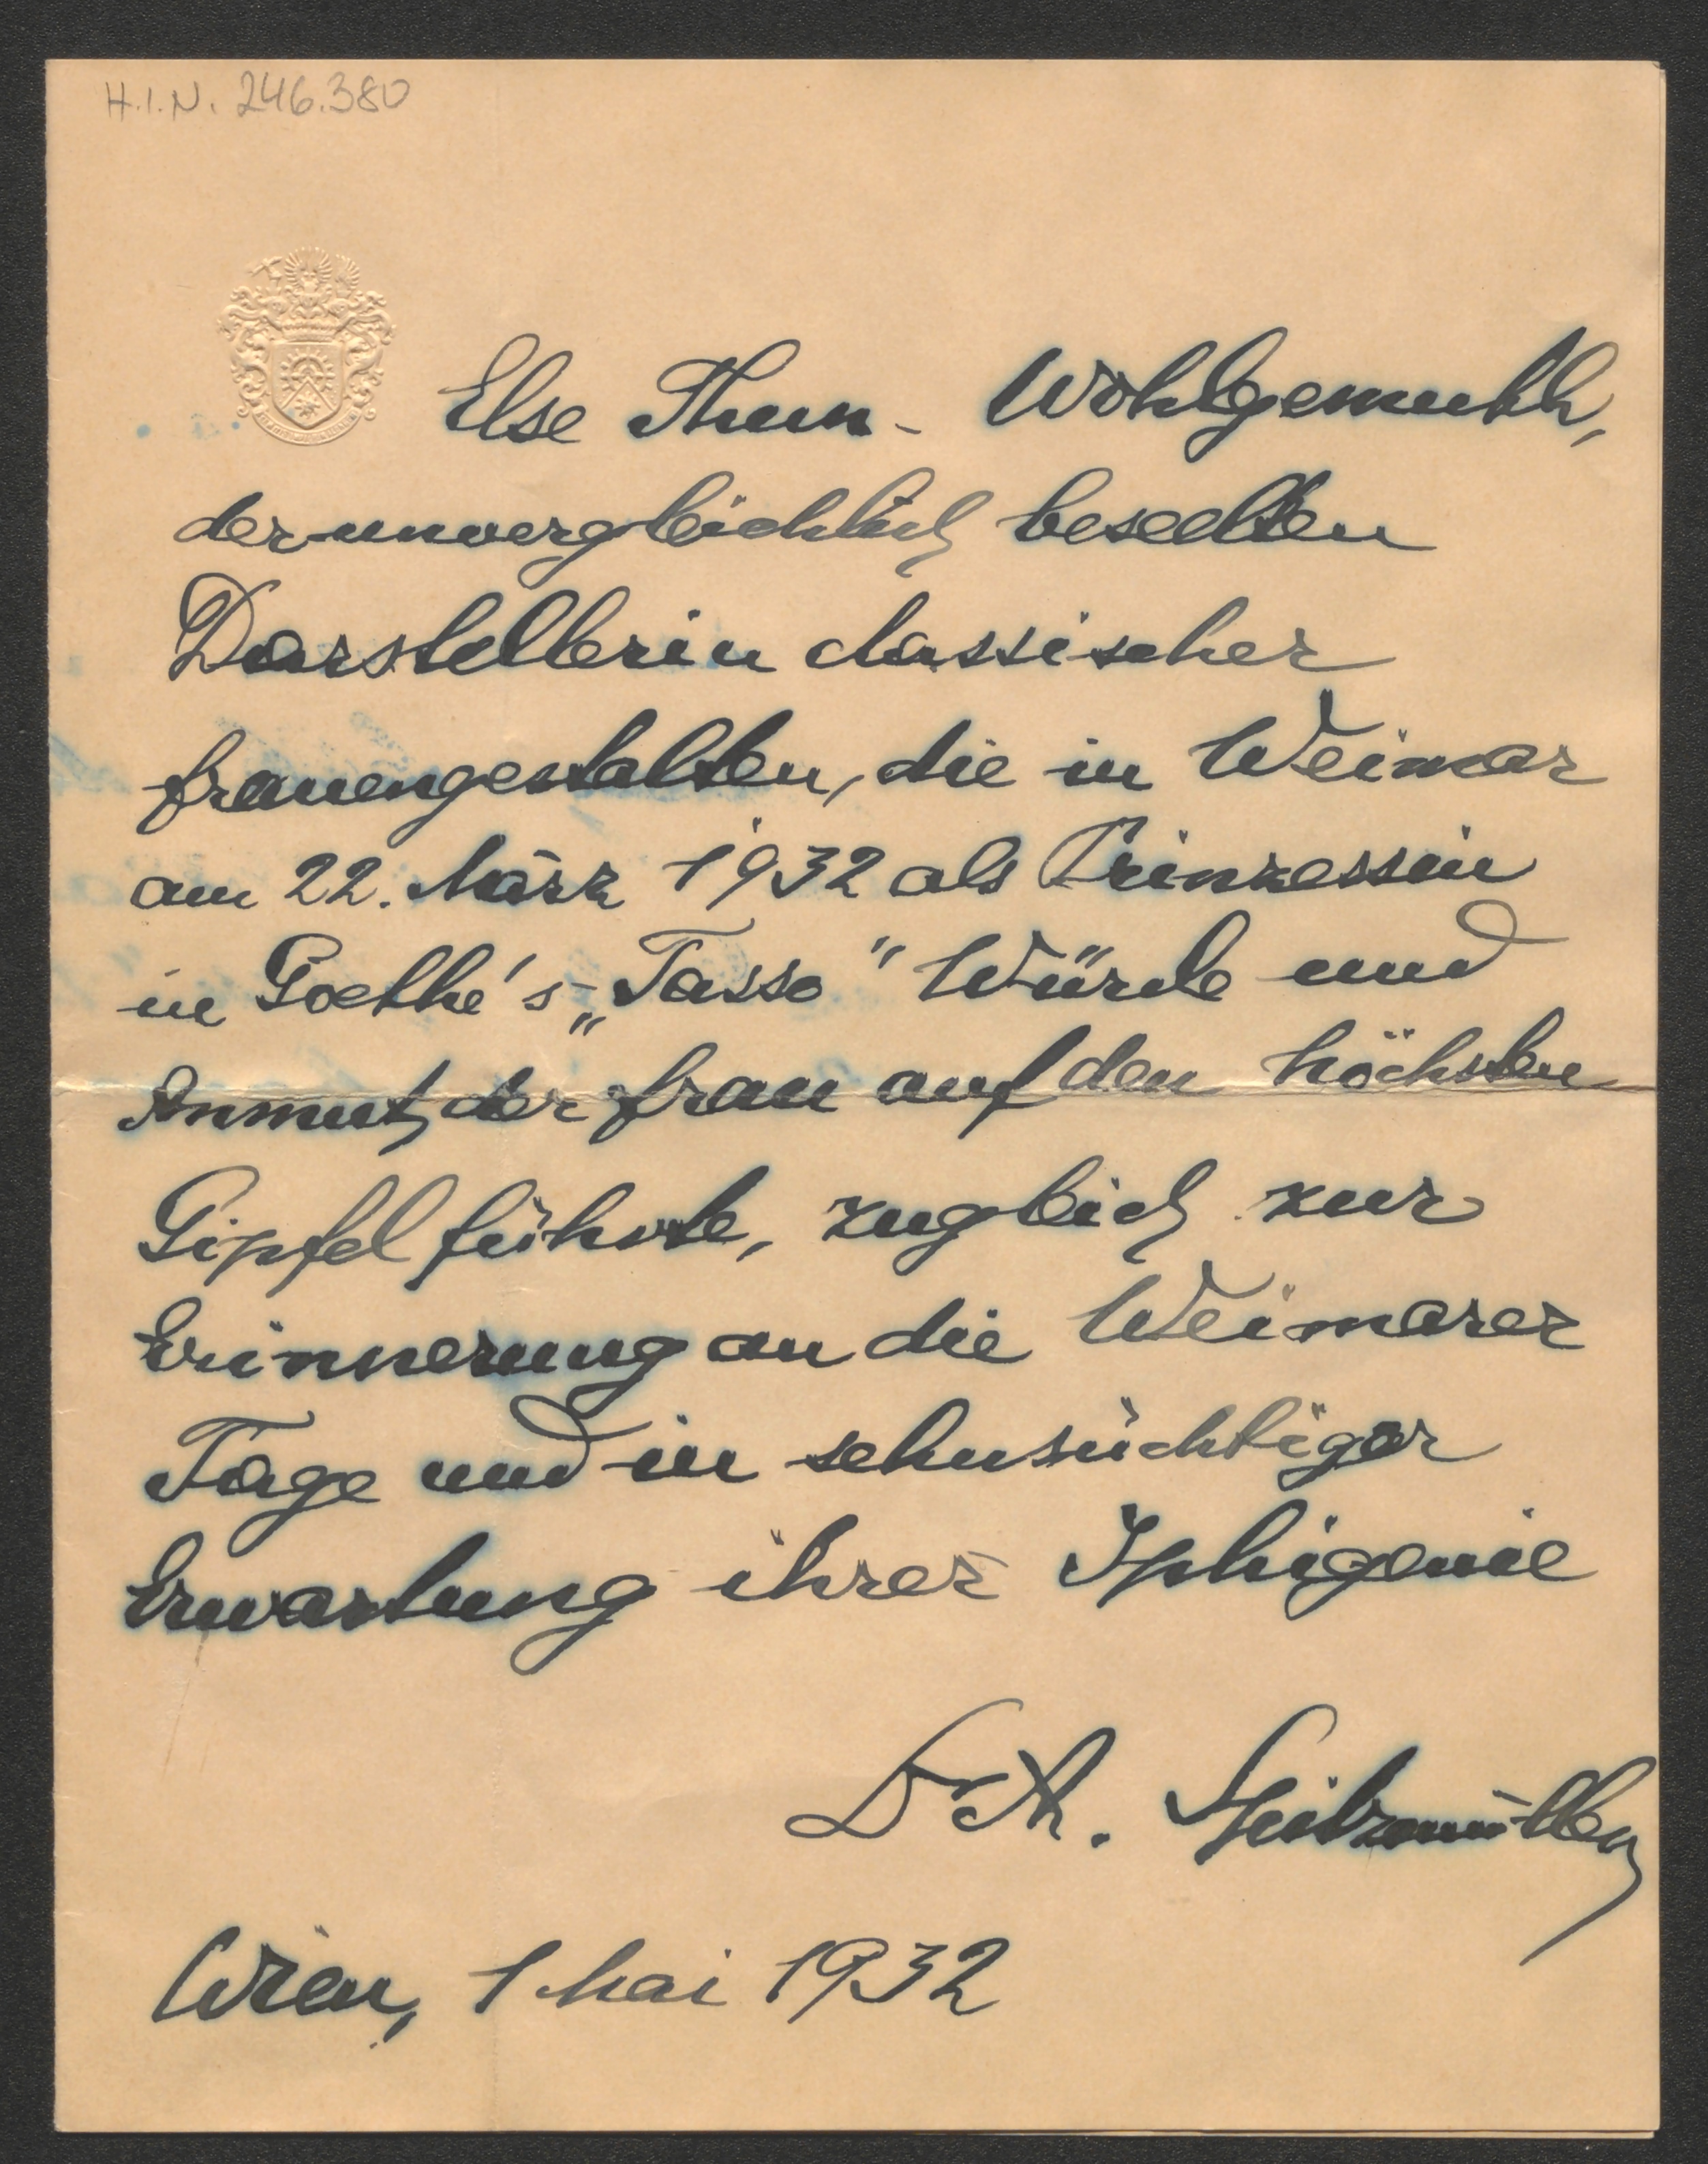 H.I.N. 246.380
Else Thun-Wohlgemuth,
der unvergleichlich beseelten
Darstellerin classischer
Frauengestalten, die in Weimar
am 22. März 1932 als Prinzessin
in Goethe's „Tasso" Würde und
Anmut der Frau auf den höchsten
Gipfel führte, zugleich zur
Erinnerung an die Weimarer
Tage und in sehnsüchtiger
Erwartung ihrer Iphigenie
Dr A. Spitzmüller
Wien, 1 Mai 1932